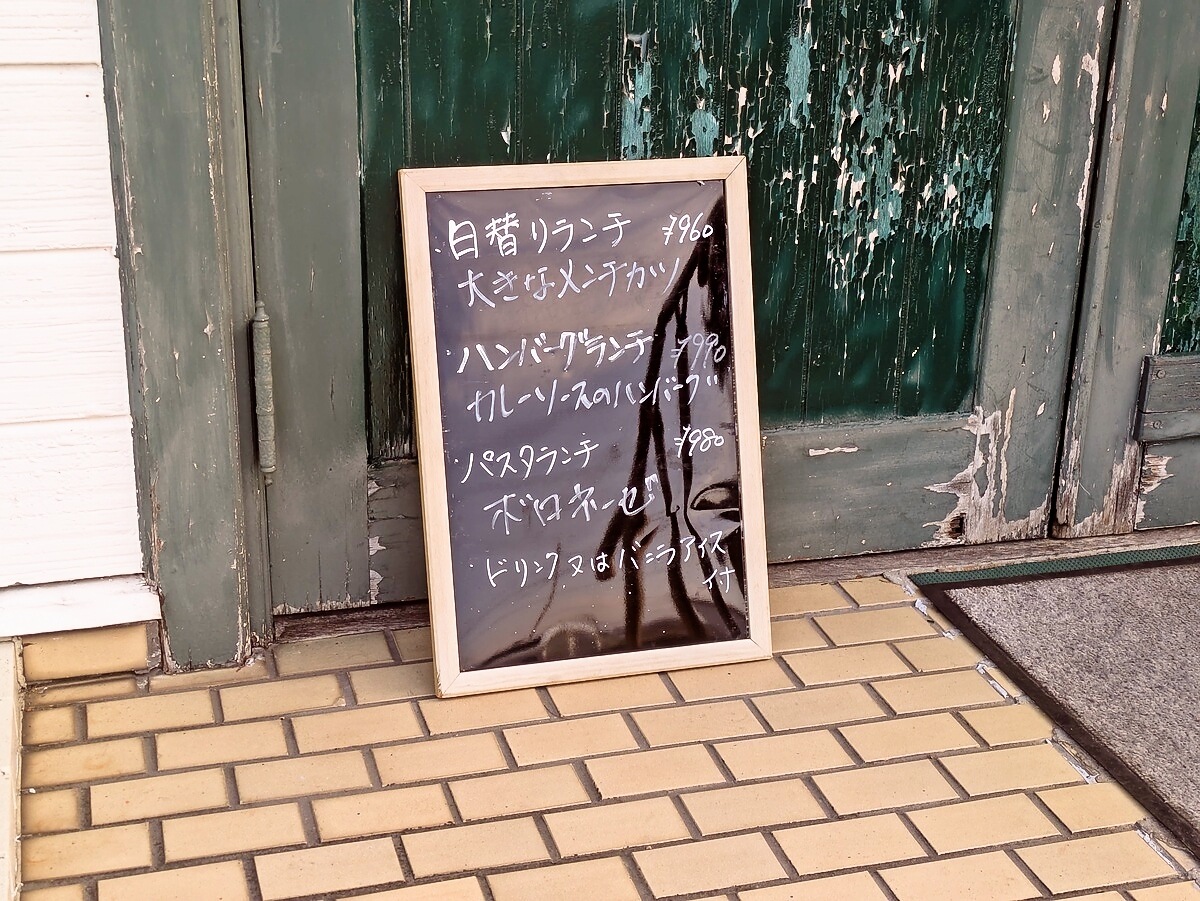 ・日替りランチ ¥960
大きなメンチカツ
・ハンバーグランチ ¥990
カレーソースのハンバーグ
・パスタランチ ¥980
ボロネーゼ
・ドリンク又はバニラアイス